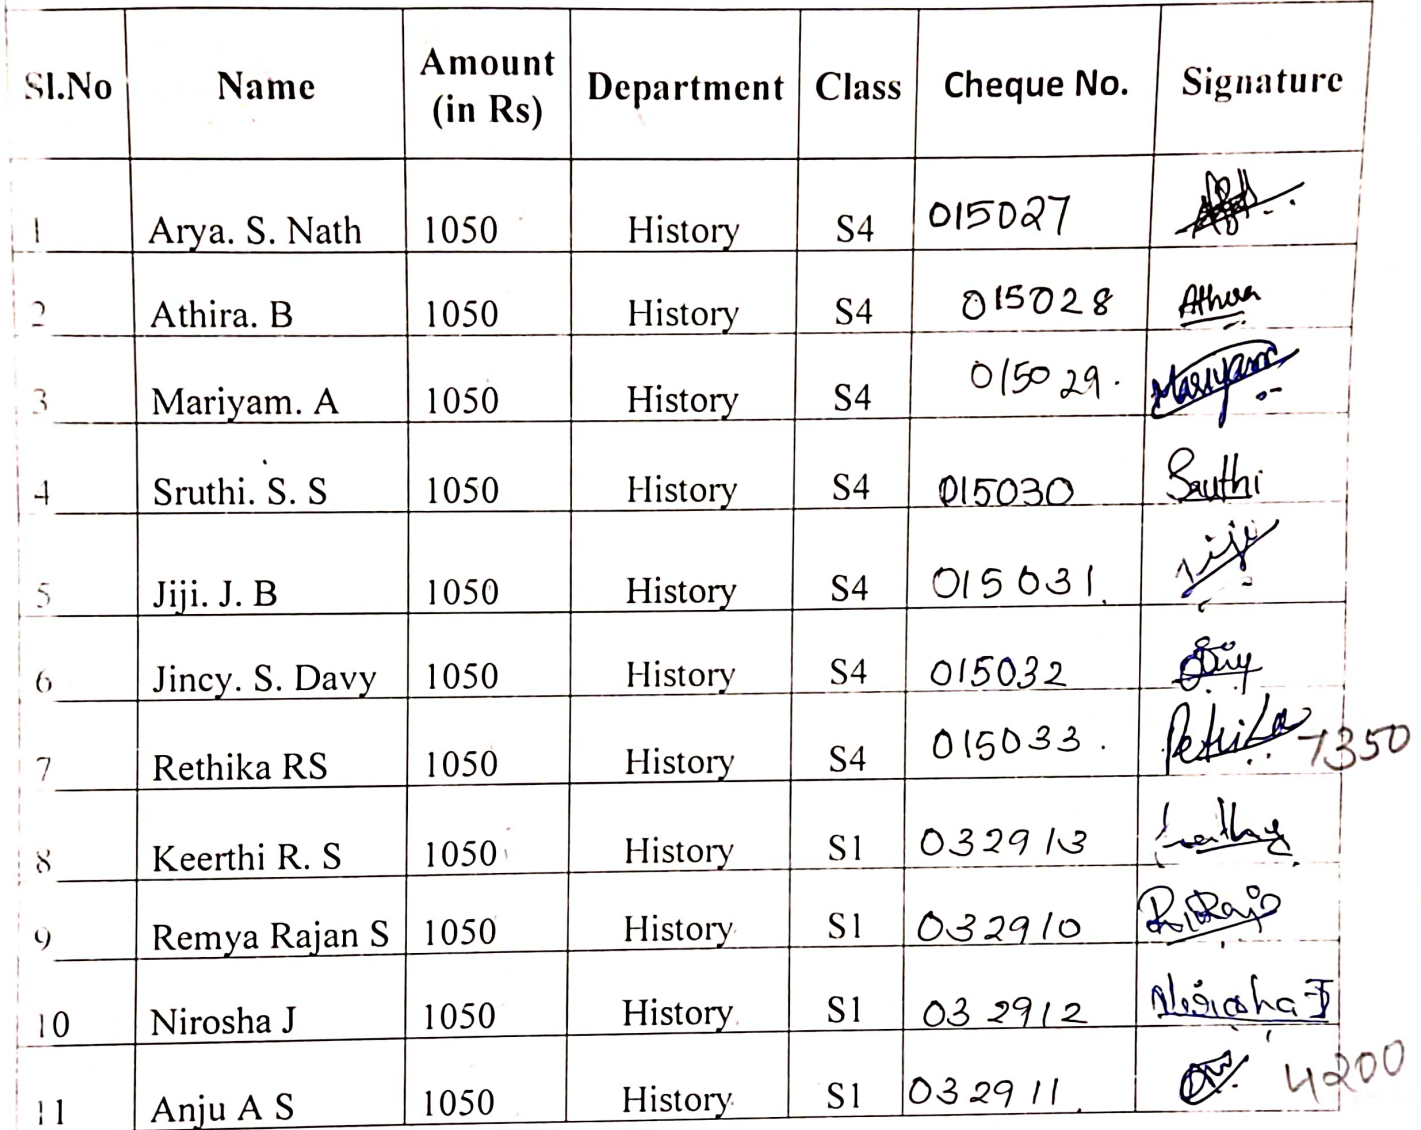 Sl.No Name Amount (in Rs) Department Class Cheque No. Signature
1 Arya. S. Nath 1050 History S4 015027
2 Athira. B 1050 History S4 015028 Athira
3 Mariyam. A 1050 History S4 015029. Mariyam
4 Sruthi. S. S 1050 History S4 015030 Sruthi
5 Jiji. J. B 1050 History S4 015031. Jiji
6 Jincy. S. Davy 1050 History S4 015032
7 Rethika RS 1050 History S4 015033. 7350
8 Keerthi R. S 1050 History S1 032913
9 Remya Rajan S 1050 History S1 032910
10 Nirosha J 1050 History S1 032912 Nirosha J
11 Anju A S 1050 History S1 032911. 4200